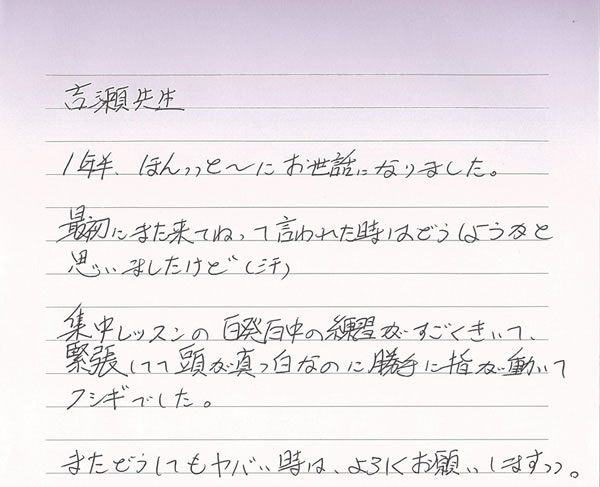 吉瀬先生
1年半、ほんっっと〜にお世話になりました。
最初にまた来てねって言われた時はどうしよう?と
思いましたけど(汗)
集中レッスンの百発百中の練習がすごくきいて、
緊張してて頭が真っ白なのに勝手に指が動いて
フシギでした。
またどうしてもヤバい時は、よろしくお願いしますっっ。